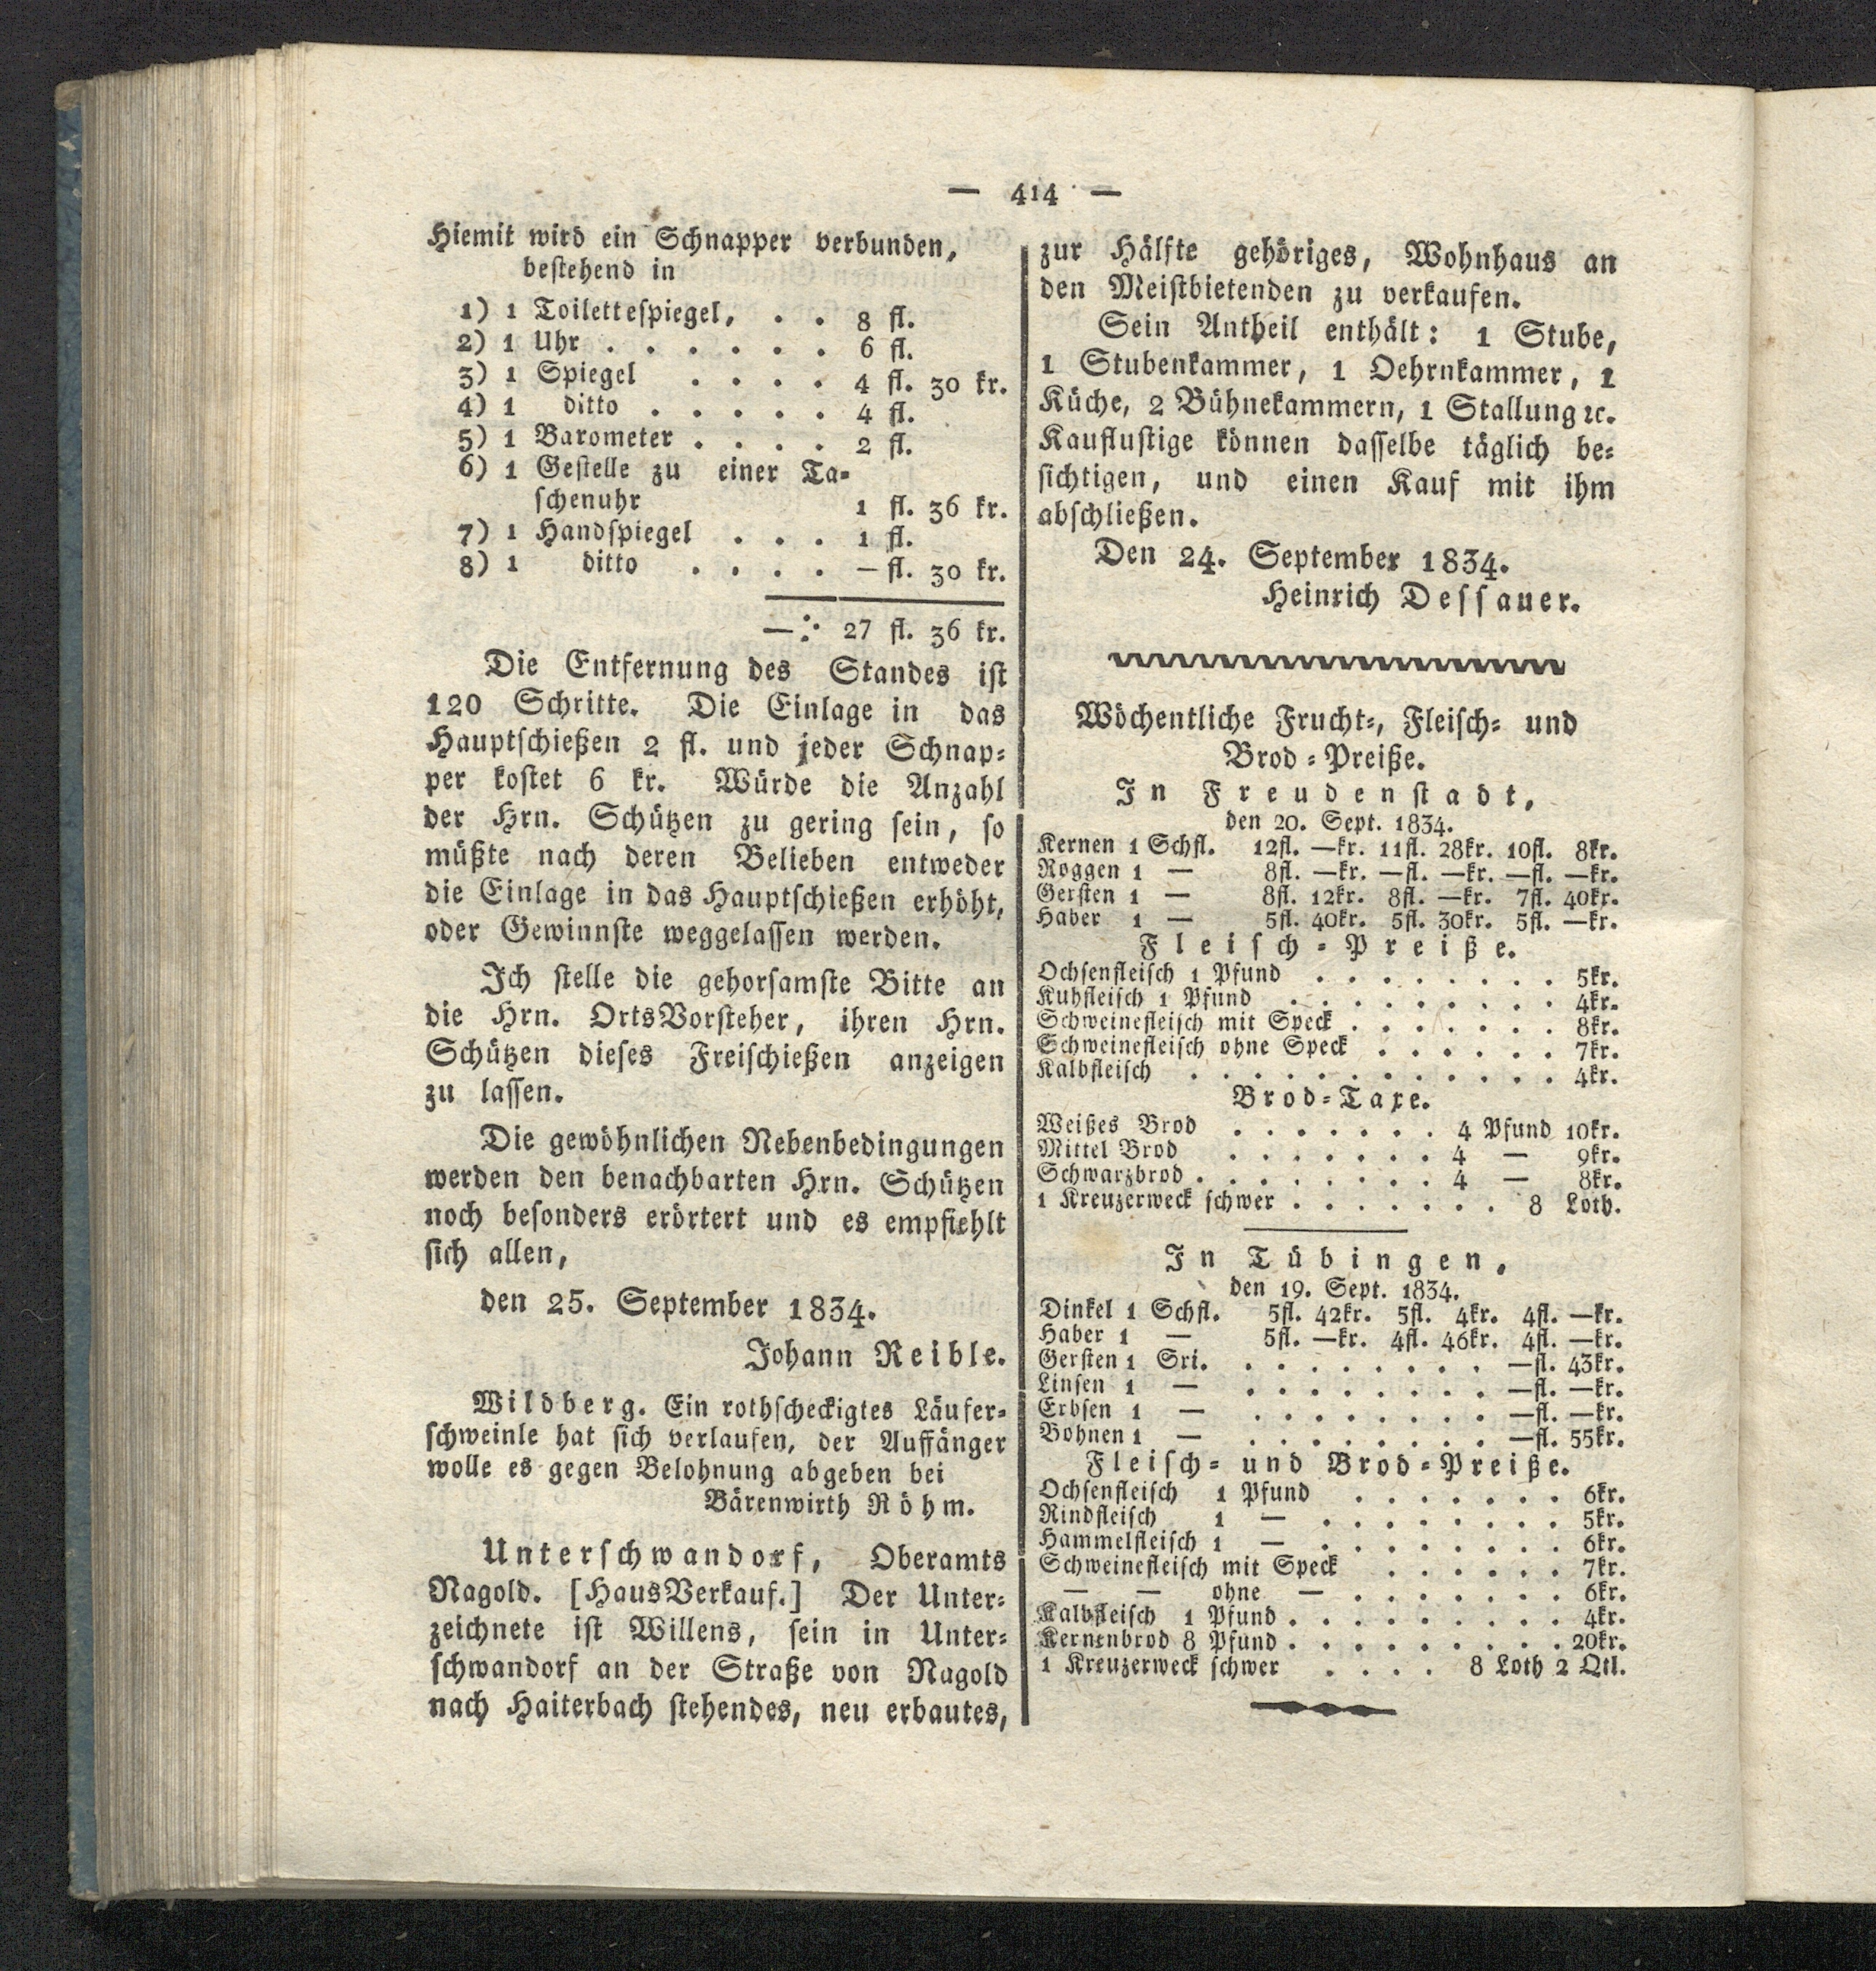 — 414 —
Hiemit wird ein Schnapper verbunden,
bestehend in
1) 1 Toilettespiegel, . . 8 fl.
2) 1 Uhr . . . . . . 6 fl.
3) 1 Spiegel . . . . 4 fl. 30 kr.
4) 1 ditto . . . . . 4 fl.
5) 1 Barometer . . . . 2 fl.
6) 1 Gestelle zu einer Ta-
schenuhr 1 fl. 36 kr.
7) 1 Handspiegel . . . 1 fl.
8) 1 ditto . . . . — fl. 30 kr.
—:· 27 fl. 36 kr.
Die Entfernung des Standes ist
120 Schritte. Die Einlage in das
Hauptschießen 2 fl. und jeder Schnap-
per kostet 6 kr. Würde die Anzahl
der Hrn. Schützen zu gering sein, so
müßte nach deren Belieben entweder
die Einlage in das Hauptschießen erhöht,
oder Gewinnste weggelassen werden.
Ich stelle die gehorsamste Bitte an
die Hrn. OrtsVorsteher, ihren Hrn.
Schützen dieses Freischießen anzeigen
zu lassen.
Die gewöhnlichen Nebenbedingungen
werden den benachbarten Hrn. Schützen
noch besonders erörtert und es empfiehlt
sich allen,
den 25. September 1834.
Johann Reible.
Wildberg. Ein rothscheckigtes Läufer-
schweinle hat sich verlaufen, der Auffänger
wolle es gegen Belohnung abgeben bei
Bärenwirth Röhm.
Unterschwandorf, Oberamts
Nagold. [HausVerkauf.] Der Unter-
zeichnete ist Willens, sein in Unter-
schwandorf an der Straße von Nagold
nach Haiterbach stehendes, neu erbautes,
zur Hälfte gehöriges, Wohnhaus an
den Meistbietenden zu verkaufen.
Sein Antheil enthält: 1 Stube,
1 Stubenkammer, 1 Oehrnkammer, 1
Küche, 2 Bühnekammern, 1 Stallung ꝛc.
Kauflustige können dasselbe täglich be-
sichtigen, und einen Kauf mit ihm
abschließen.
Den 24. September 1834.
Heinrich Dessauer.
Wöchentliche Frucht-, Fleisch- und
Brod-Preiße.
In Freudenstadt,
den 20. Sept. 1834.
Kernen 1 Schfl. 12fl. —kr. 11fl. 28kr. 10fl. 8kr.
Roggen 1 — 8fl. —kr. —fl. —kr. —fl. —kr.
Gersten 1 — 8fl. 12kr. 8fl. —kr. 7fl. 40kr.
Haber 1 — 5fl. 40kr. 5fl. 30kr. 5fl. —kr.
Fleisch-Preiße.
Ochsenfleisch 1 Pfund . . . . . . . . 5kr.
Kuhfleisch 1 Pfund . . . . . . . . . 4kr.
Schweinefleisch mit Speck . . . . . . . 8kr.
Schweinefleisch ohne Speck . . . . . . 7kr.
Kalbfleisch . . . . . . . . . . . . 4kr.
Brod-Taxe.
Weißes Brod . . . . . . . 4 Pfund 10kr.
Mittel Brod . . . . . . . 4 — 9kr.
Schwarzbrod . . . . . . . . 4 — 8kr.
1 Kreuzerweck schwer . . . . . . . 8 Loth.
In Tübingen,
den 19. Sept. 1834.
Dinkel 1 Schfl. 5fl. 42kr. 5fl. 4kr. 4fl. —kr.
Haber 1 — 5fl. —kr. 4fl. 46kr. 4fl. —kr.
Gersten 1 Sri. . . . . . . . . —fl. 43kr.
Linsen 1 — . . . . . . . . —fl. —kr.
Erbsen 1 — . . . . . . . . —fl. —kr.
Bohnen 1 — . . . . . . . . —fl. 55kr.
Fleisch- und Brod-Preiße.
Ochsenfleisch 1 Pfund . . . . . . . 6kr.
Rindfleisch 1 — . . . . . . . . 5kr.
Hammelfleisch 1 — . . . . . . . . 6kr.
Schweinefleisch mit Speck . . . . . . 7kr.
— — ohne — . . . . . . . 6kr.
Kalbfleisch 1 Pfund . . . . . . . . . 4kr.
Kernenbrod 8 Pfund . . . . . . . . . 20kr.
1 Kreuzerweck schwer . . . . 8 Loth 2 Qtl.